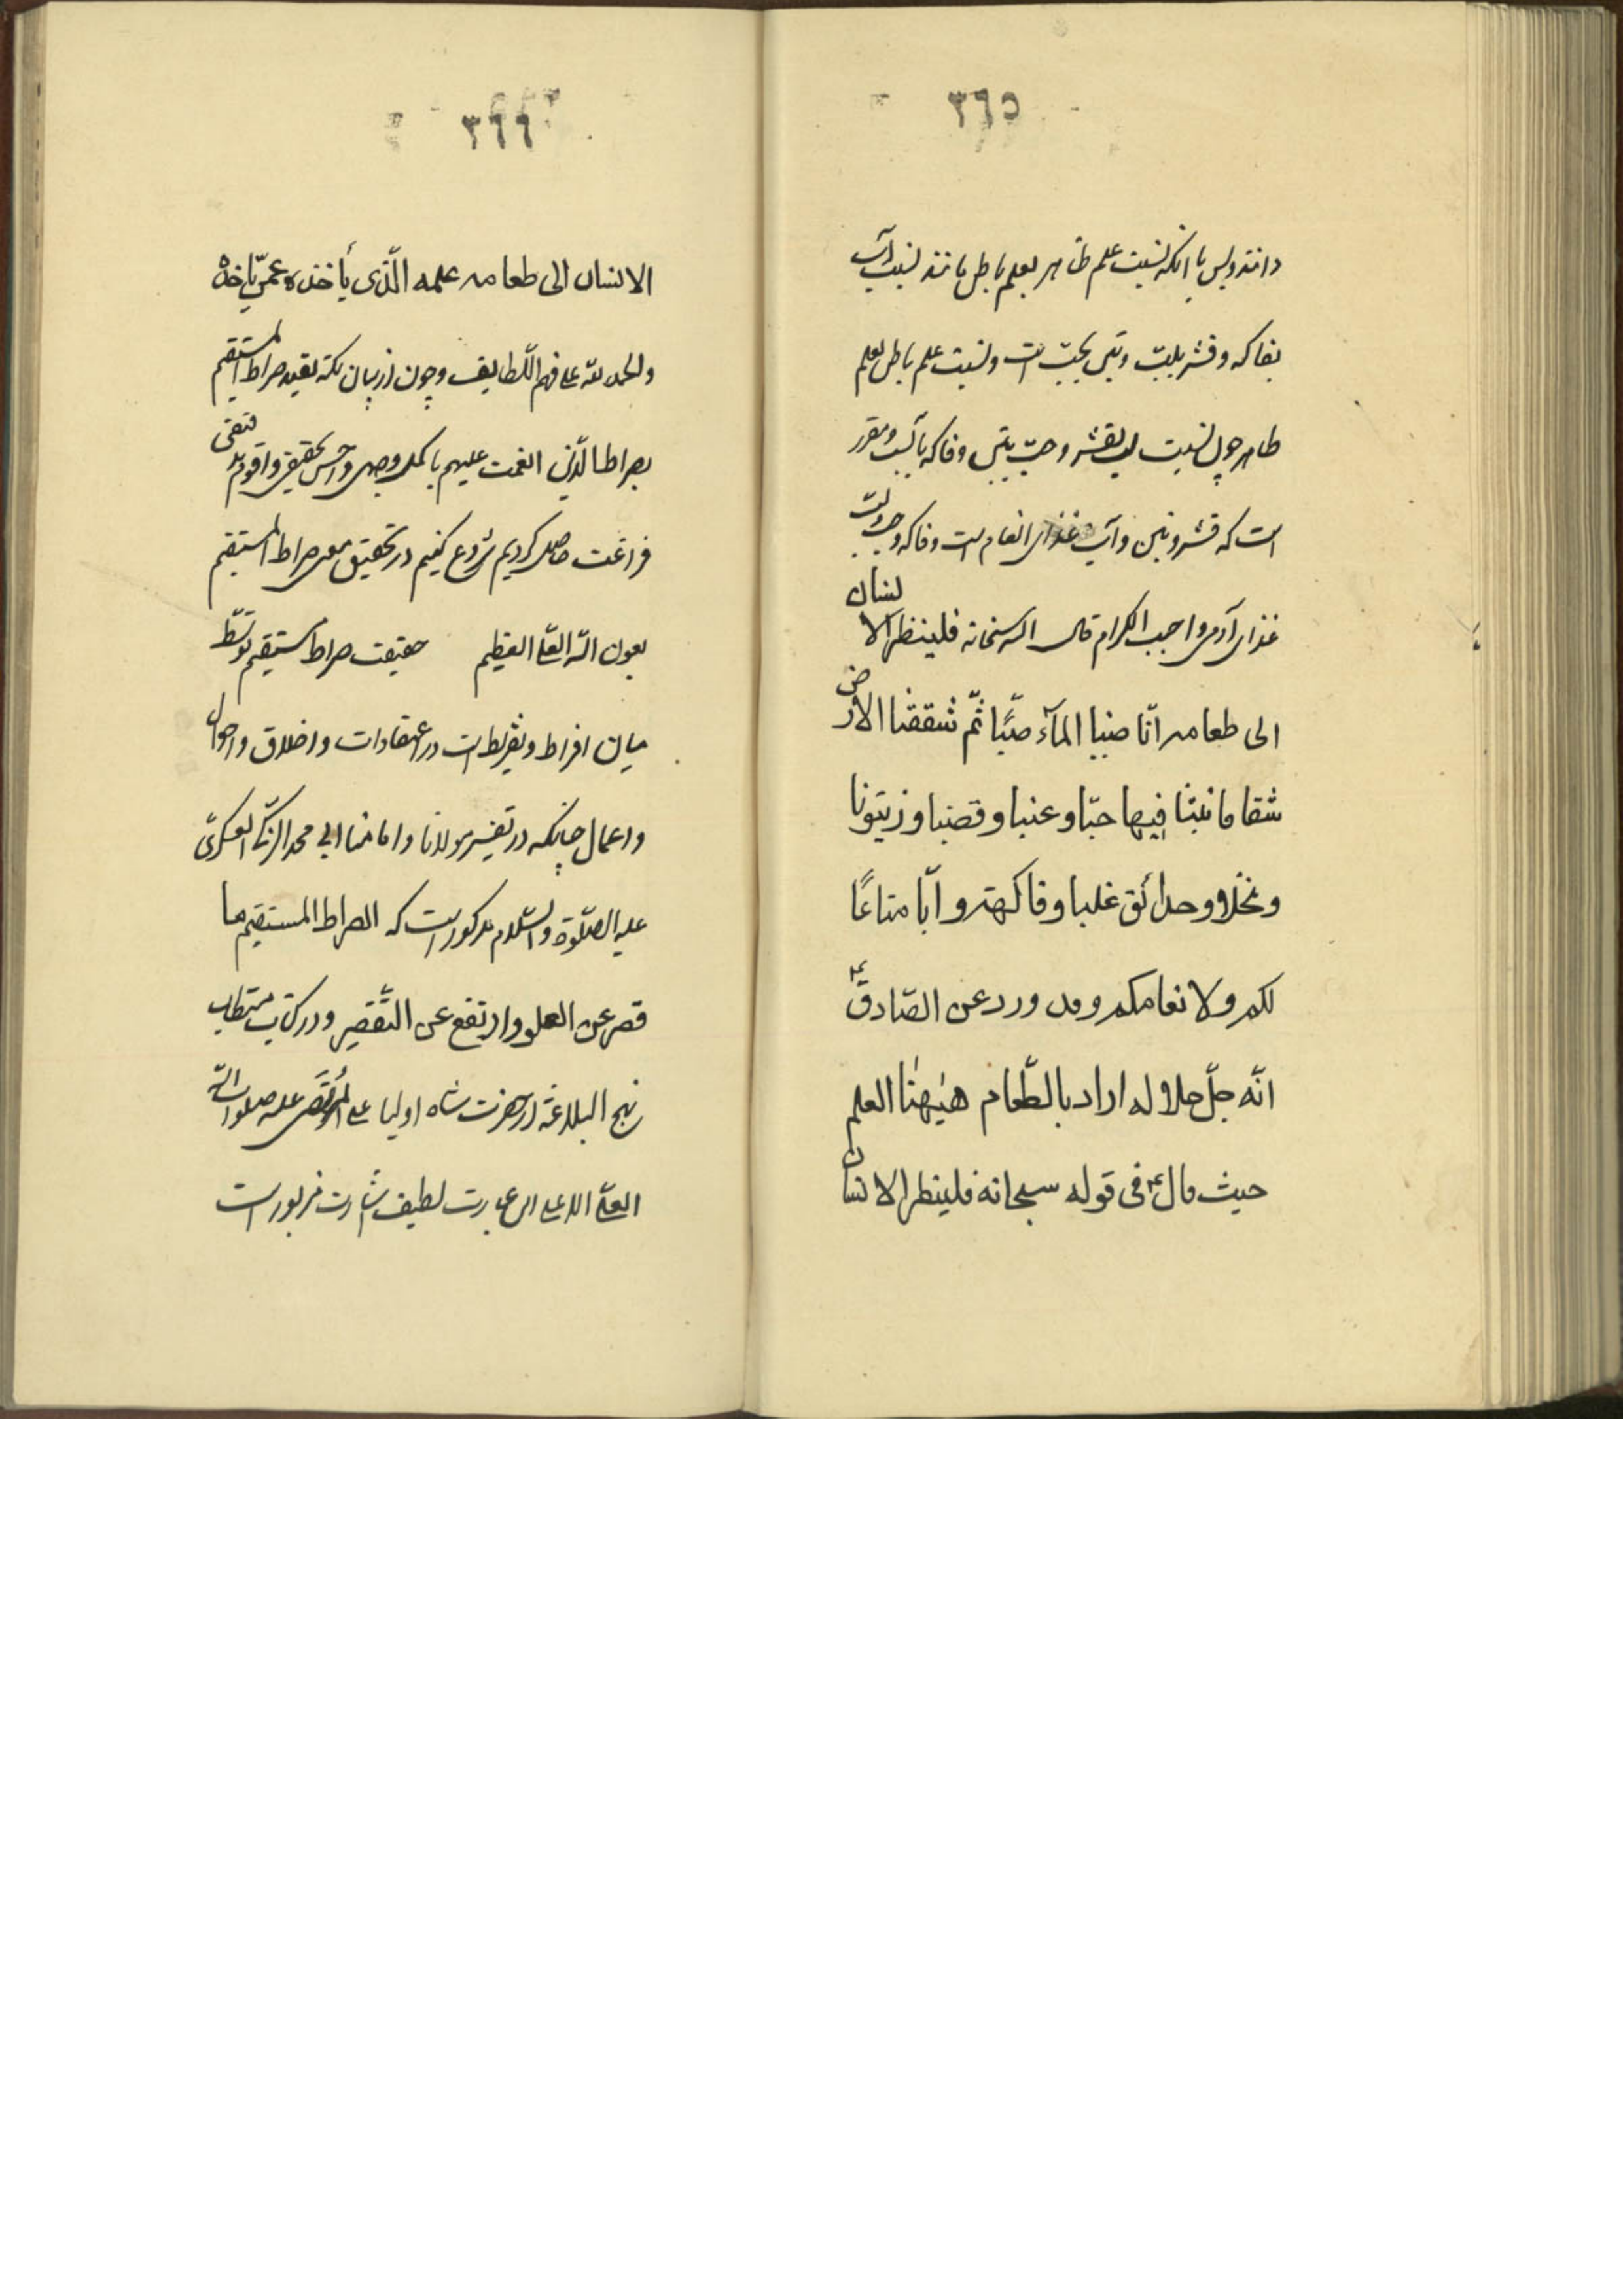 ٣٦٥
دانند و بس با انکه نسبت علم ظاهر بعلم باطن مانند نسبت ابّ
بفاکه و قشر بلبّ و تبن بحبّ است و نسبت علم باطن بعلم
ظاهر چون نسبت لب بقشر و حبّ بتبن و فاکه بابّ و مقرر
است که قشر و تبن و ابّ غذای انعام است و فاکه و حب و لبّ
غذای آدمی واجب الکرام قال الله سبحانه فلینظر الانسان
الی طعامه انّا صببنا المآء صبّا ثمّ شققنا الارض
شقا فانبتنا فیها حبّا و عنبا و قضبا و زیتونا
و نخلا و حدائق غلبا و فاکهة و ابّا متاعًا
لکم ولانعامکم و قد ورد عن الصّادق ع
انّه جلّ جلاله اراد بالطّعام هیهنا العلم
حیث قال ع فی قوله سبحانه فلینظر الانسان
٣٦٦
الانسان الی طعامه علمه الّذی یأخذه عمّن یاخذه
والحمد لله علی فهم اللّطایف و چون از بیان نکته تقیید صراط المستقیم
بصراط الّذین انعمت علیهم باکمل وجهی و احسن تحقیقی و اقوم
فراغت حاصل کردیم شروع کنیم در تحقیق معنی صراط المستقیم
بعون الله العلیّ العظیم حقیقت صراط مستقیم توسّط
میان افراط و تفریط است در اعتقادات و اخلاق و احوال
و اعمال چنانکه در تفسیر مولانا و امامنا ابی محمد الزّکیّ العسکریّ
علیه الصّلوة والسّلام مذکور است که الصراط المستقیم ما
قصر عن العلو و ارتفع عن التّقصیر و در کتاب مستطاب
نهج البلاغة از حضرت شاه اولیا علی المرتَضی علیه صلوات الله
العلیّ الاعلی این عبارت لطیف اشارت مزبور است